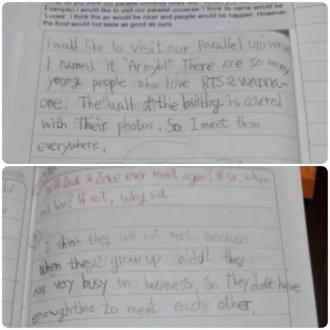 Example) I would like to visit our parallel universe. I think its name would be
'Luces'. I think the air would be nicer and people would be happier. However,
the food would not taste as good as ours.
I would like to visit our parallel universe
I named it "Army bl" There are so many
young people who love BTS & wanna-
one. The wall of the building is covered
with their photos. So I meet them
everywhere.
will Zack & Zeke ever meet again? If so, when
and how? If not, why not
I think they will not meet. Because
when they grow up and they
are very busy on business, So they don't have
enough time to meet each other.